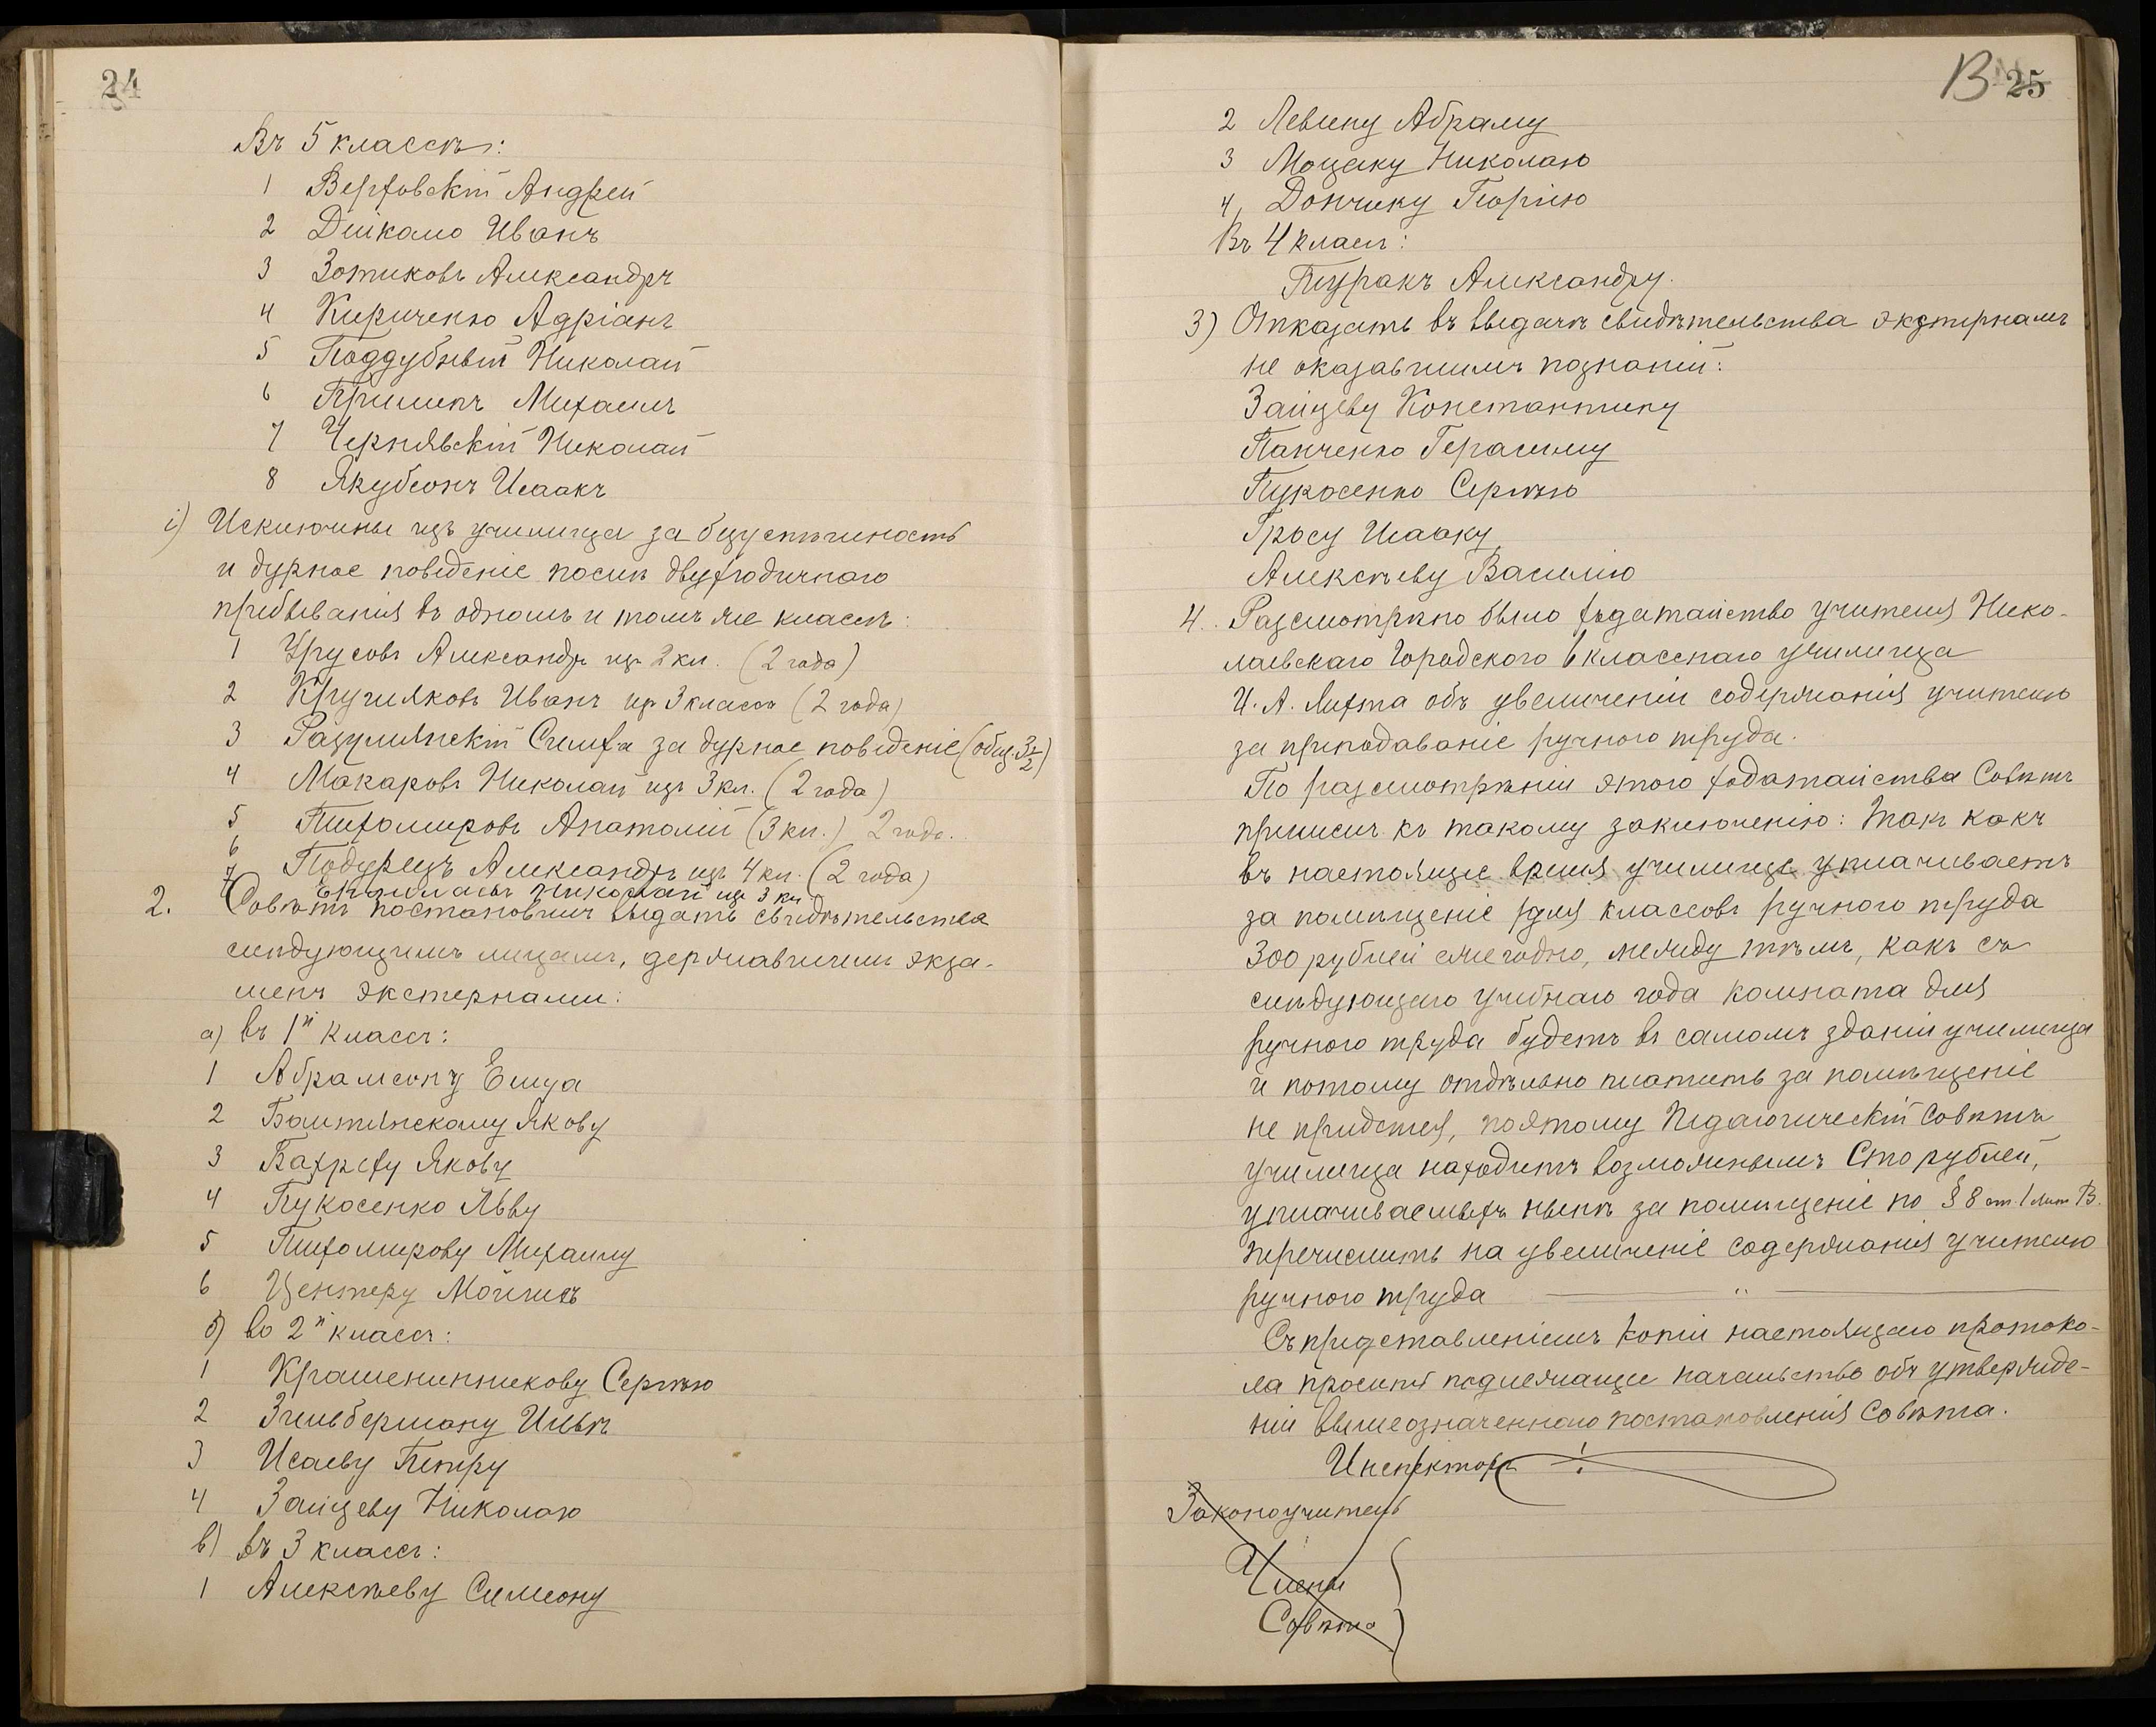 24
Въ 5 классѣ:
1 Верховскій Андрей
2 Дейкало Иванъ
3 Зотиковъ Александръ
4 Кириченко Адріанъ
5 Поддубный Николай
6 Прилипъ Михаилъ
7 Чернявскій Николай
8 Якубсонъ Исаакъ
і) Исключены изъ училища за безуспѣшность
и дурное поведеніе послѣ двухгодичнаго
пребыванія въ одномъ и томъ же классѣ:
1 Урусовъ Александръ изъ 2 кл. (2 года)
2 Кругляковъ Иванъ изъ 3 класса (2 года)
3 Разумянскій Симха за дурное поведеніе
4 Макаровъ Николай изъ 3 кл. (2 года)
5 Тихомировъ Анатолій (3 кл.) 2 года.
6 Подурецъ Александръ изъ 4 кл. (2 года)
7 Николай изъ 3 кл
2. Совѣтъ постановилъ выдать свидѣтельства
слѣдующимъ лицамъ, державшимъ экза-
менъ экстернами:
а) въ 1й классъ:
1 Абрамсону
2 Балтянскому Якову
3 Якову
4 Пукосенко Льву
5 Тихомирову Михаилу
6 Центеру
б) во 2й классъ:
1 Крашенинникову Сергѣю
2 Зильберману Ильѣ
3 Исаеву Петру
4 Зайцеву Николаю
в) въ 3 классъ:
1 Алексѣеву Симеону
В 25
2 Левину Абраму
3 Моцаку Николаю
4, Дончику Георгію
Въ 4 классъ:
Пуракъ Александру.
3) Отказать въ выдачѣ свидѣтельства экстернамъ
не оказавшимъ познаній:
Зайцеву Константину
Панченко Герасиму
Пукосенко Сергѣю
Гросу Исааку
Алексѣеву Василію
4. Разсмотрѣно было ходатайство учителя Нико-
лаевскаго Городского 6 класснаго училища
И. А. Лихта объ увеличеніи содержанія учителю
за преподаваніе ручного труда.
По разсмотрѣніи этого ходатайства Совѣтъ
пришелъ къ такому заключенію: Такъ какъ
въ настоящее время училище уплачиваетъ
за помѣщеніе для классовъ ручного труда
300 рублей ежегодно, между тѣмъ, какъ съ
слѣдующаго учебнаго года комната для
ручного труда будетъ въ самомъ зданіи училища
и потому отдѣльно платить за помѣщеніе
не придется, поэтому Педагогическій Совѣтъ
училища находитъ возможнымъ Сто рублей,
уплачиваемыхъ нынѣ за помѣщеніе по § 8 ст. 1 лит В.
перечислить на увеличеніе содержанія учителю
ручного труда
Съ представленіемъ копіи настоящаго протоко-
ла проситъ подлежащее начальство объ утвержде-
ніи вышеозначеннаго постановленія Совѣта.
Инспекторъ
Законоучитель
Члены
Совѣта